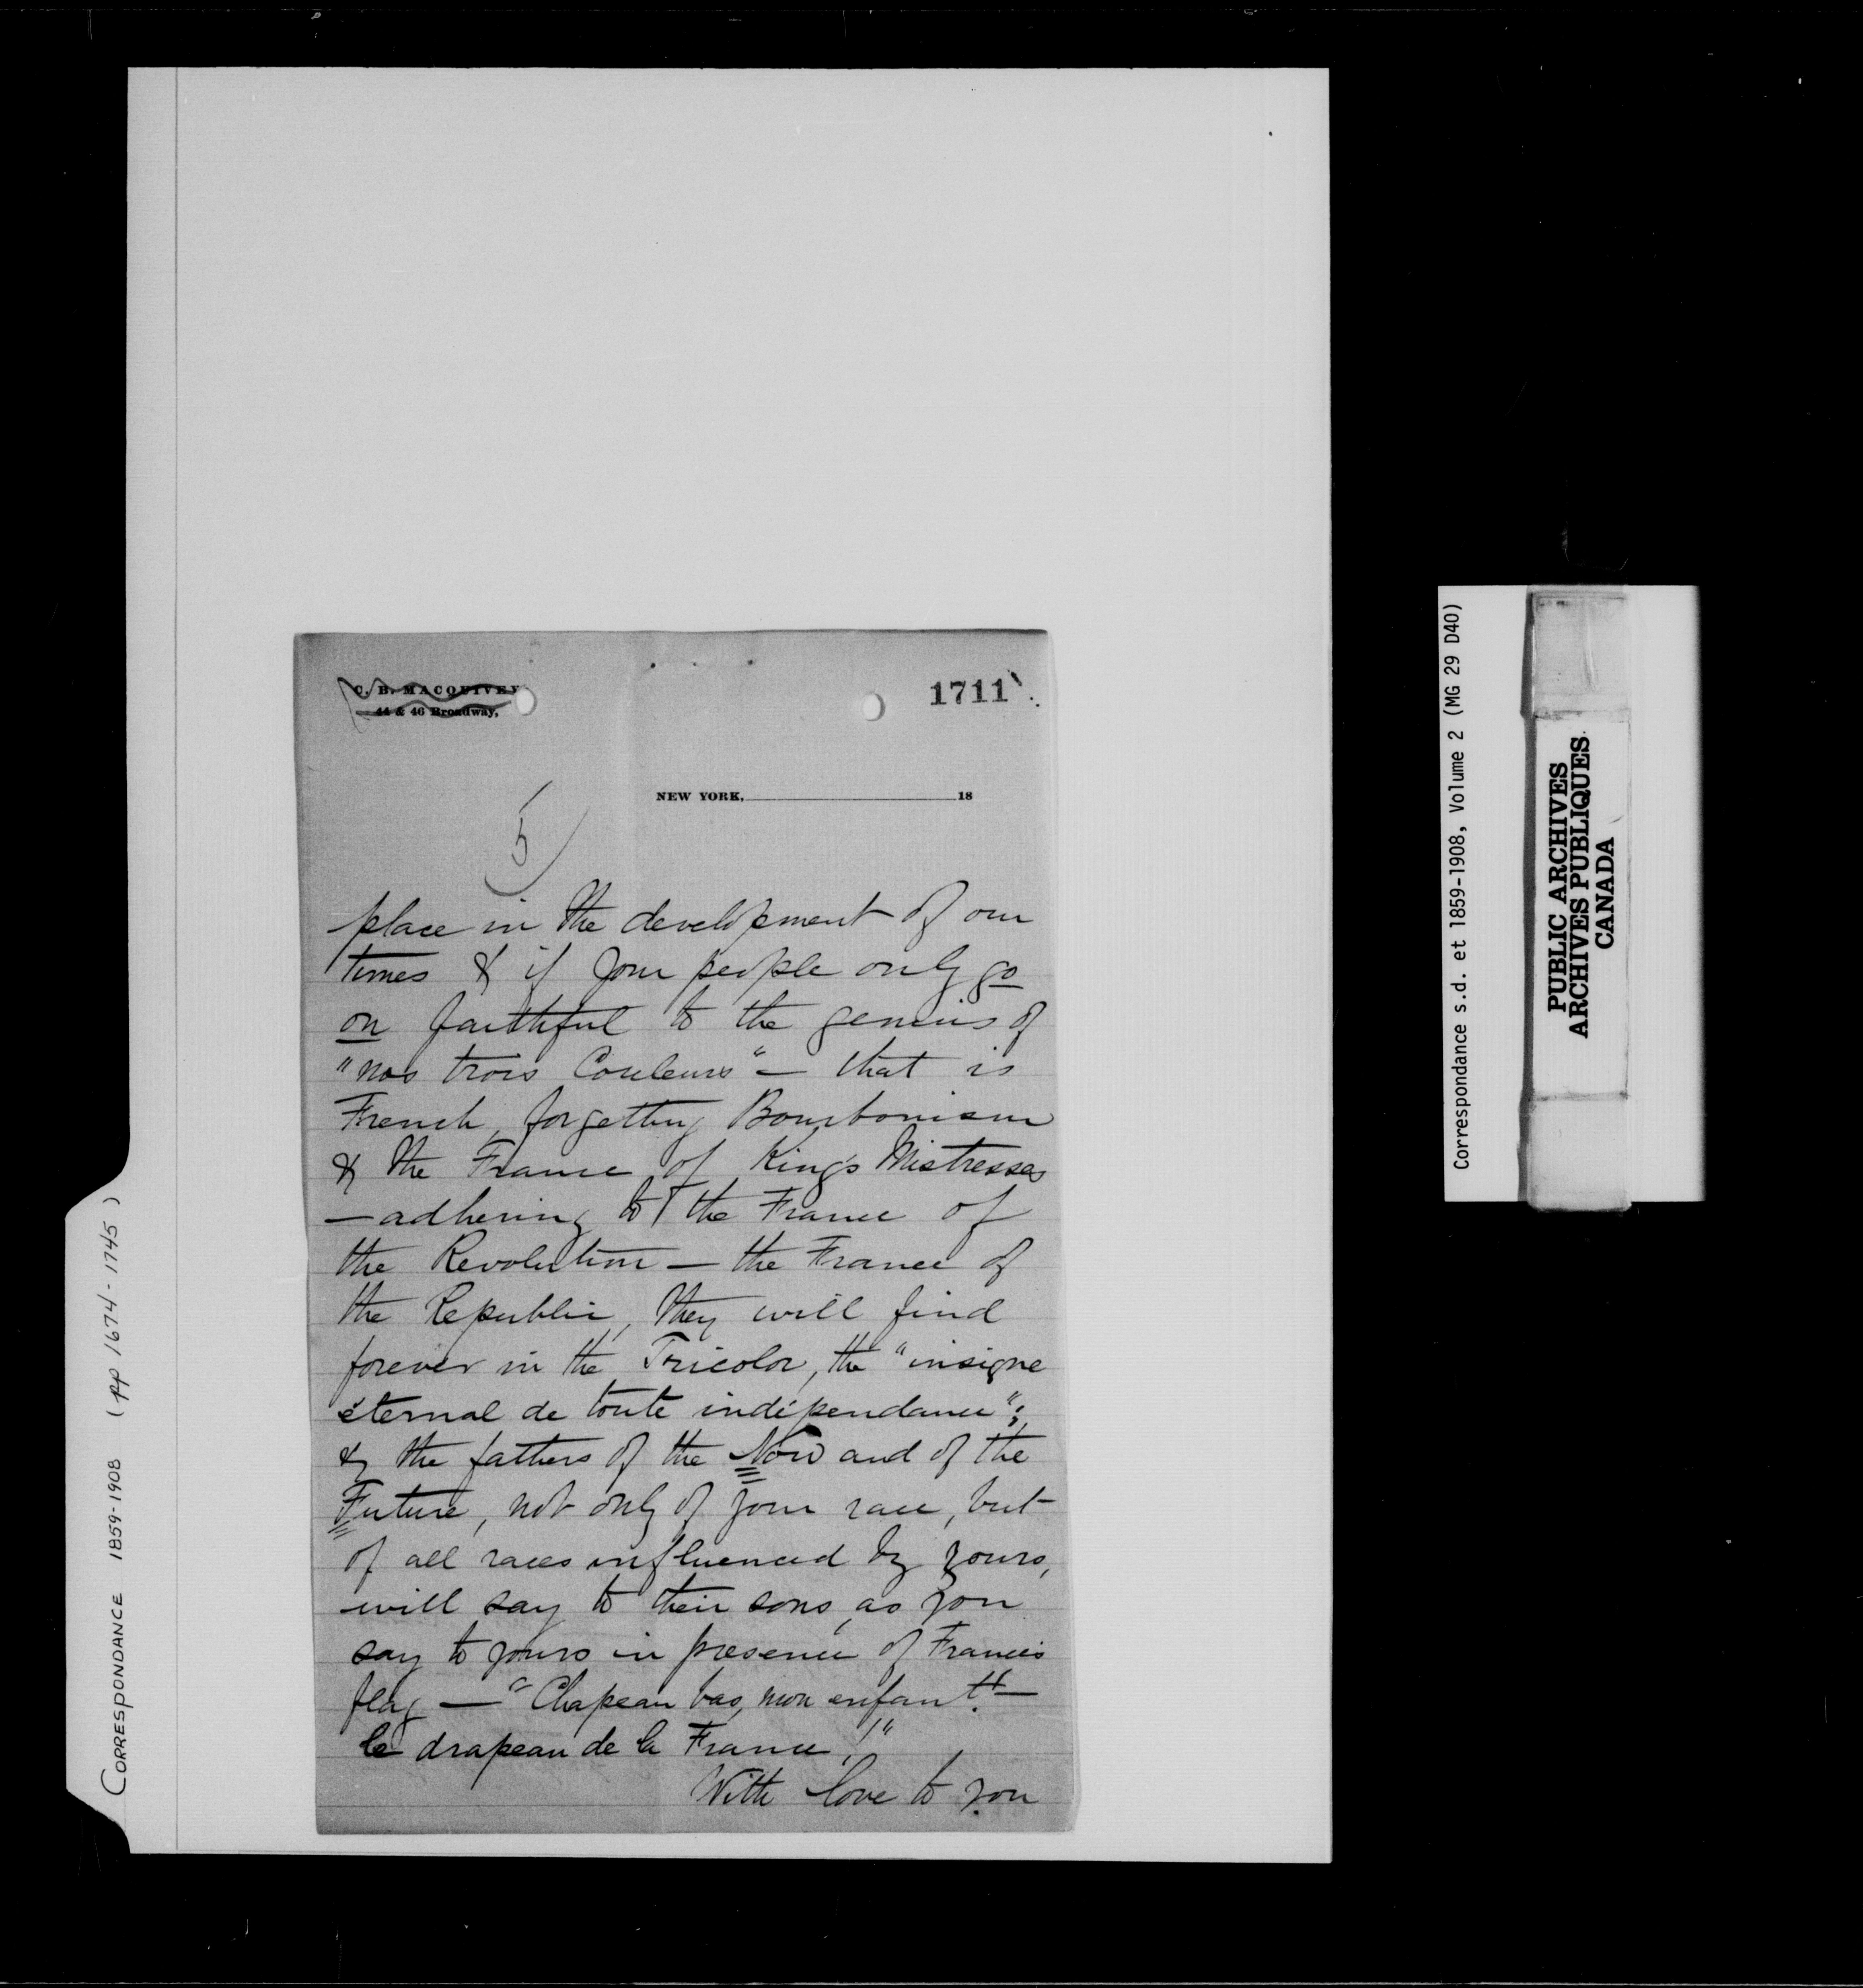 C. B. MACQUIVEY
44 & 46 Broadway,
1711
NEW YORK, 18
5
place in the development of our
times & if your people only go
on faithful to the genius of
"nos trois Couleurs" — that is
French, forgetting Bourbonism
& the France of King's Mistresses
— adhering to the France of
the Revolution — the France of
the Republic, they will find
forever in the Tricolor, the "insigne
éternal de toute indépendance";
& the fathers of the Now and of the
Future, not only of your race, but
of all races influenced by yours,
will say to their sons, as you
say to yours in presence of France's
flag — "Chapeau bas, mon enfant! —
le drapeau de la France!"
With love to you
CORRESPONDANCE 1859-1908 (pp 1674-1745)
Correspondance s.d. et 1859-1908, Volume 2 (MG 29 D40)
PUBLIC ARCHIVES
ARCHIVES PUBLIQUES
CANADA